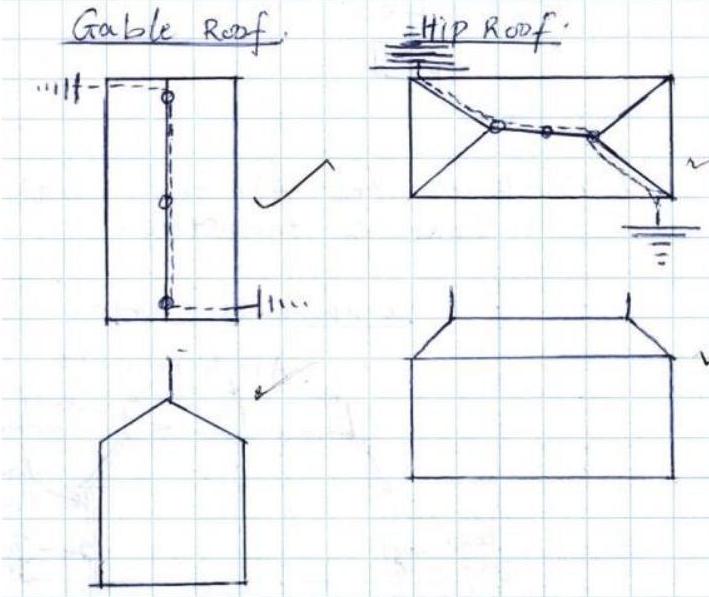 Gable Roof.
Hip Roof.